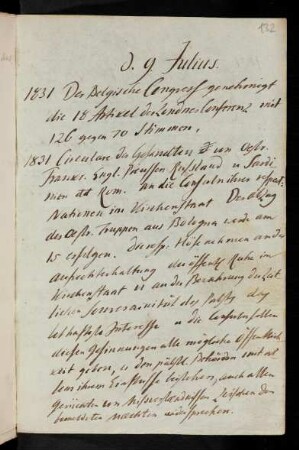 172
d. 9 Julius.
1831 Der Belgische Congress genehmigt
die 18 Artikel der Londner Conferenz mit
126 gegen 70 Stimmen.
1831 Circulare der Gesandten v. Oestr.
Frankr. Engl. Preussen Russland u. Sardi
nien in Rom. an die Consuln ihrer respect.
Nationen im Kirchenstaat Der Abzug
der Oestr. Truppen aus Bologna werde am
15 erfolgen. Diese Höfe nehmen an der
Aufrechterhaltung der öffentl. Ruhe im
Kirchenstaat u. an der Bewahrung der zeit
lichen Souverainität des Pabstes das
lebhafteste Interesse u. die Consuln sollen
diesen Gesinnungen alle mögliche Öffentlich
keit geben, u. den päbstl. Behörden mit al
lem ihrem Einflusse beystehen, auch allen
Gerüchten von Missverständnissen zwischen den
bemeldeten Mächten widersprechen.